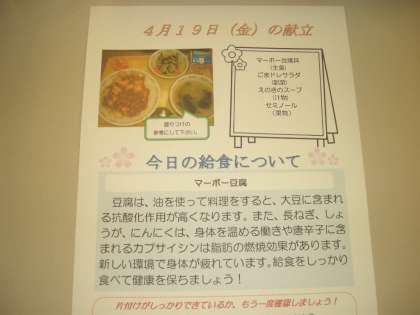 4月19日(金)の献立
マーボー豆腐丼
(主食)
ごまドレサラダ
(副菜)
えのきのスープ
(汁物)
セミノール
(果物)
盛りつけの
参考にして下さい。
今日の給食について
マーボー豆腐
豆腐は、油を使って料理をすると、大豆に含まれ
る抗酸化作用が高くなります。また、長ねぎ、しょ
うが、にんにくは、身体を温める働きや唐辛子に含
まれるカプサイシンは脂肪の燃焼効果があります。
新しい環境で身体が疲れています。給食をしっかり
食べて健康を保ちましょう!
片付けがしっかりできているか、もう一度確認しましょう!